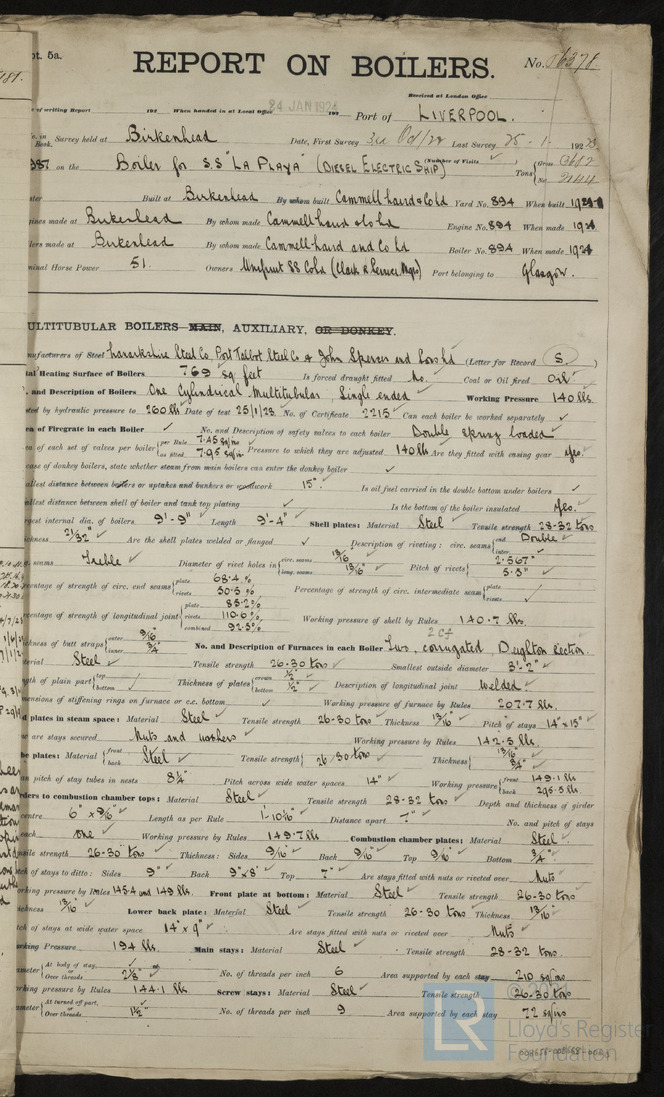 pt. 5a.
REPORT ON BOILERS.
No. 6378
Received at London Office
of writing Report 192 When handed in at Local Office 24 JAN 1924 192 Port of LIVERPOOL.
Survey held at Birkenhead Date, First Survey Last Survey 25 - 1 - 192
Book.
987 on the Boiler for S.S "LA PLAYA" (DIESEL ELECTRIC SHIP) (Number of Visits ) Tons Gross Net
Built at Birkenhead By whom built Cammell Laird & Co Ld Yard No. 894 When built
made at Birkenhead By whom made Cammell Laird & Co Ld Engine No. 894 When made
made at Birkenhead By whom made Cammell Laird and Co Ld Boiler No. 894 When made
minal Horse Power 51. Owners Port belonging to Glasgow.
ULTITUBULAR BOILERS MAIN, AUXILIARY, OR DONKEY.
nufacturers of Steel Lanarkshire Steel Co, Port Talbot Steel Co & John Spencer and Sons Ld (Letter for Record S )
tal Heating Surface of Boilers 769 sq. feet Is forced draught fitted No. Coal or Oil fired Oil
. and Description of Boilers One Cylindrical Multitubular, Single ended Working Pressure 140 lbs
ted by hydraulic pressure to 260 lbs Date of test 25/1/23 No. of Certificate 2215 Can each boiler be worked separately ✓
ea of Firegrate in each Boiler ✓ No. and Description of safety valves to each boiler Double spring loaded
ea of each set of valves per boiler per Rule 7.45 sq/ins as fitted 7.95 sq/ins Pressure to which they are adjusted 140 lbs Are they fitted with easing gear Yes.
case of donkey boilers, state whether steam from main boilers can enter the donkey boiler ✓
allest distance between boilers or uptakes and bunkers or woodwork 15". Is oil fuel carried in the double bottom under boilers ✓
allest distance between shell of boiler and tank top plating ✓ Is the bottom of the boiler insulated Yes.
rgest internal dia. of boilers 9'-9" Length 9'-4" Shell plates: Material Steel Tensile strength 28-32 tons
ickness 21/32" Are the shell plates welded or flanged ✓ Description of riveting: circ. seams end Double inter.
. seams Treble Diameter of rivet holes in circ. seams 13/16 long. seams 13/16" Pitch of rivets 2.567" 5.5"
centage of strength of circ. end seams plate 68.4 % rivets 50.5 % Percentage of strength of circ. intermediate seam plate rivets ✓
centage of strength of longitudinal joint plate 85.2 % rivets 110.6 % combined 92.5% Working pressure of shell by Rules 140.7 lbs.
ickness of butt straps outer 9/16 inner 3/4" No. and Description of Furnaces in each Boiler Two, corrugated, Deighton section.
terial Steel Tensile strength 26-30 tons Smallest outside diameter 3'-2"
gth of plain part top bottom ✓ Thickness of plates crown 1/2" bottom 1/2" Description of longitudinal joint welded.
mensions of stiffening rings on furnace or c.c. bottom ✓ Working pressure of furnace by Rules 207.7 lbs.
d plates in steam space: Material Steel Tensile strength 26-30 tons Thickness 13/16" Pitch of stays 14" x 15"
are stays secured Nuts and washers Working pressure by Rules 142.5 lbs.
be plates: Material front back Steel Tensile strength 26/30 tons Thickness 13/16" 3/4"
an pitch of stay tubes in nests 8 1/4" Pitch across wide water spaces 14" Working pressure front 149.1 lbs back 295.5 lbs.
ders to combustion chamber tops: Material Steel Tensile strength 28-32 tons Depth and thickness of girder
centre 6" x 9/16" Length as per Rule 1'-10 1/16" Distance apart 7" No. and pitch of stays
each one Working pressure by Rules 149.7 lbs Combustion chamber plates: Material Steel
sile strength 26-30 tons Thickness: Sides 9/16" Back 9/16" Top 9/16" Bottom 3/4"
tch of stays to ditto: Sides 9" Back 9" x 8" Top 7" Are stays fitted with nuts or riveted over Nuts
orking pressure by Rules 145.4 and 149 lbs. Front plate at bottom: Material Steel Tensile strength 26-30 tons
ickness 13/16" Lower back plate: Material Steel Tensile strength 26-30 tons Thickness 13/16"
tch of stays at wide water space 14" x 9" Are stays fitted with nuts or riveted over Nuts
orking Pressure 194 lbs. Main stays: Material Steel Tensile strength 28-32 tons.
ameter At body of stay, or Over threads 2 1/8" No. of threads per inch 6 Area supported by each stay 210 sq/ins
orking pressure by Rules 144.1 lbs Screw stays: Material Steel Tensile strength 26-30 tons
ameter At turned off part, or Over threads 1 1/2" No. of threads per inch 9 Area supported by each stay 72 sq/ins
LR
Lloyd's Register
Foundation